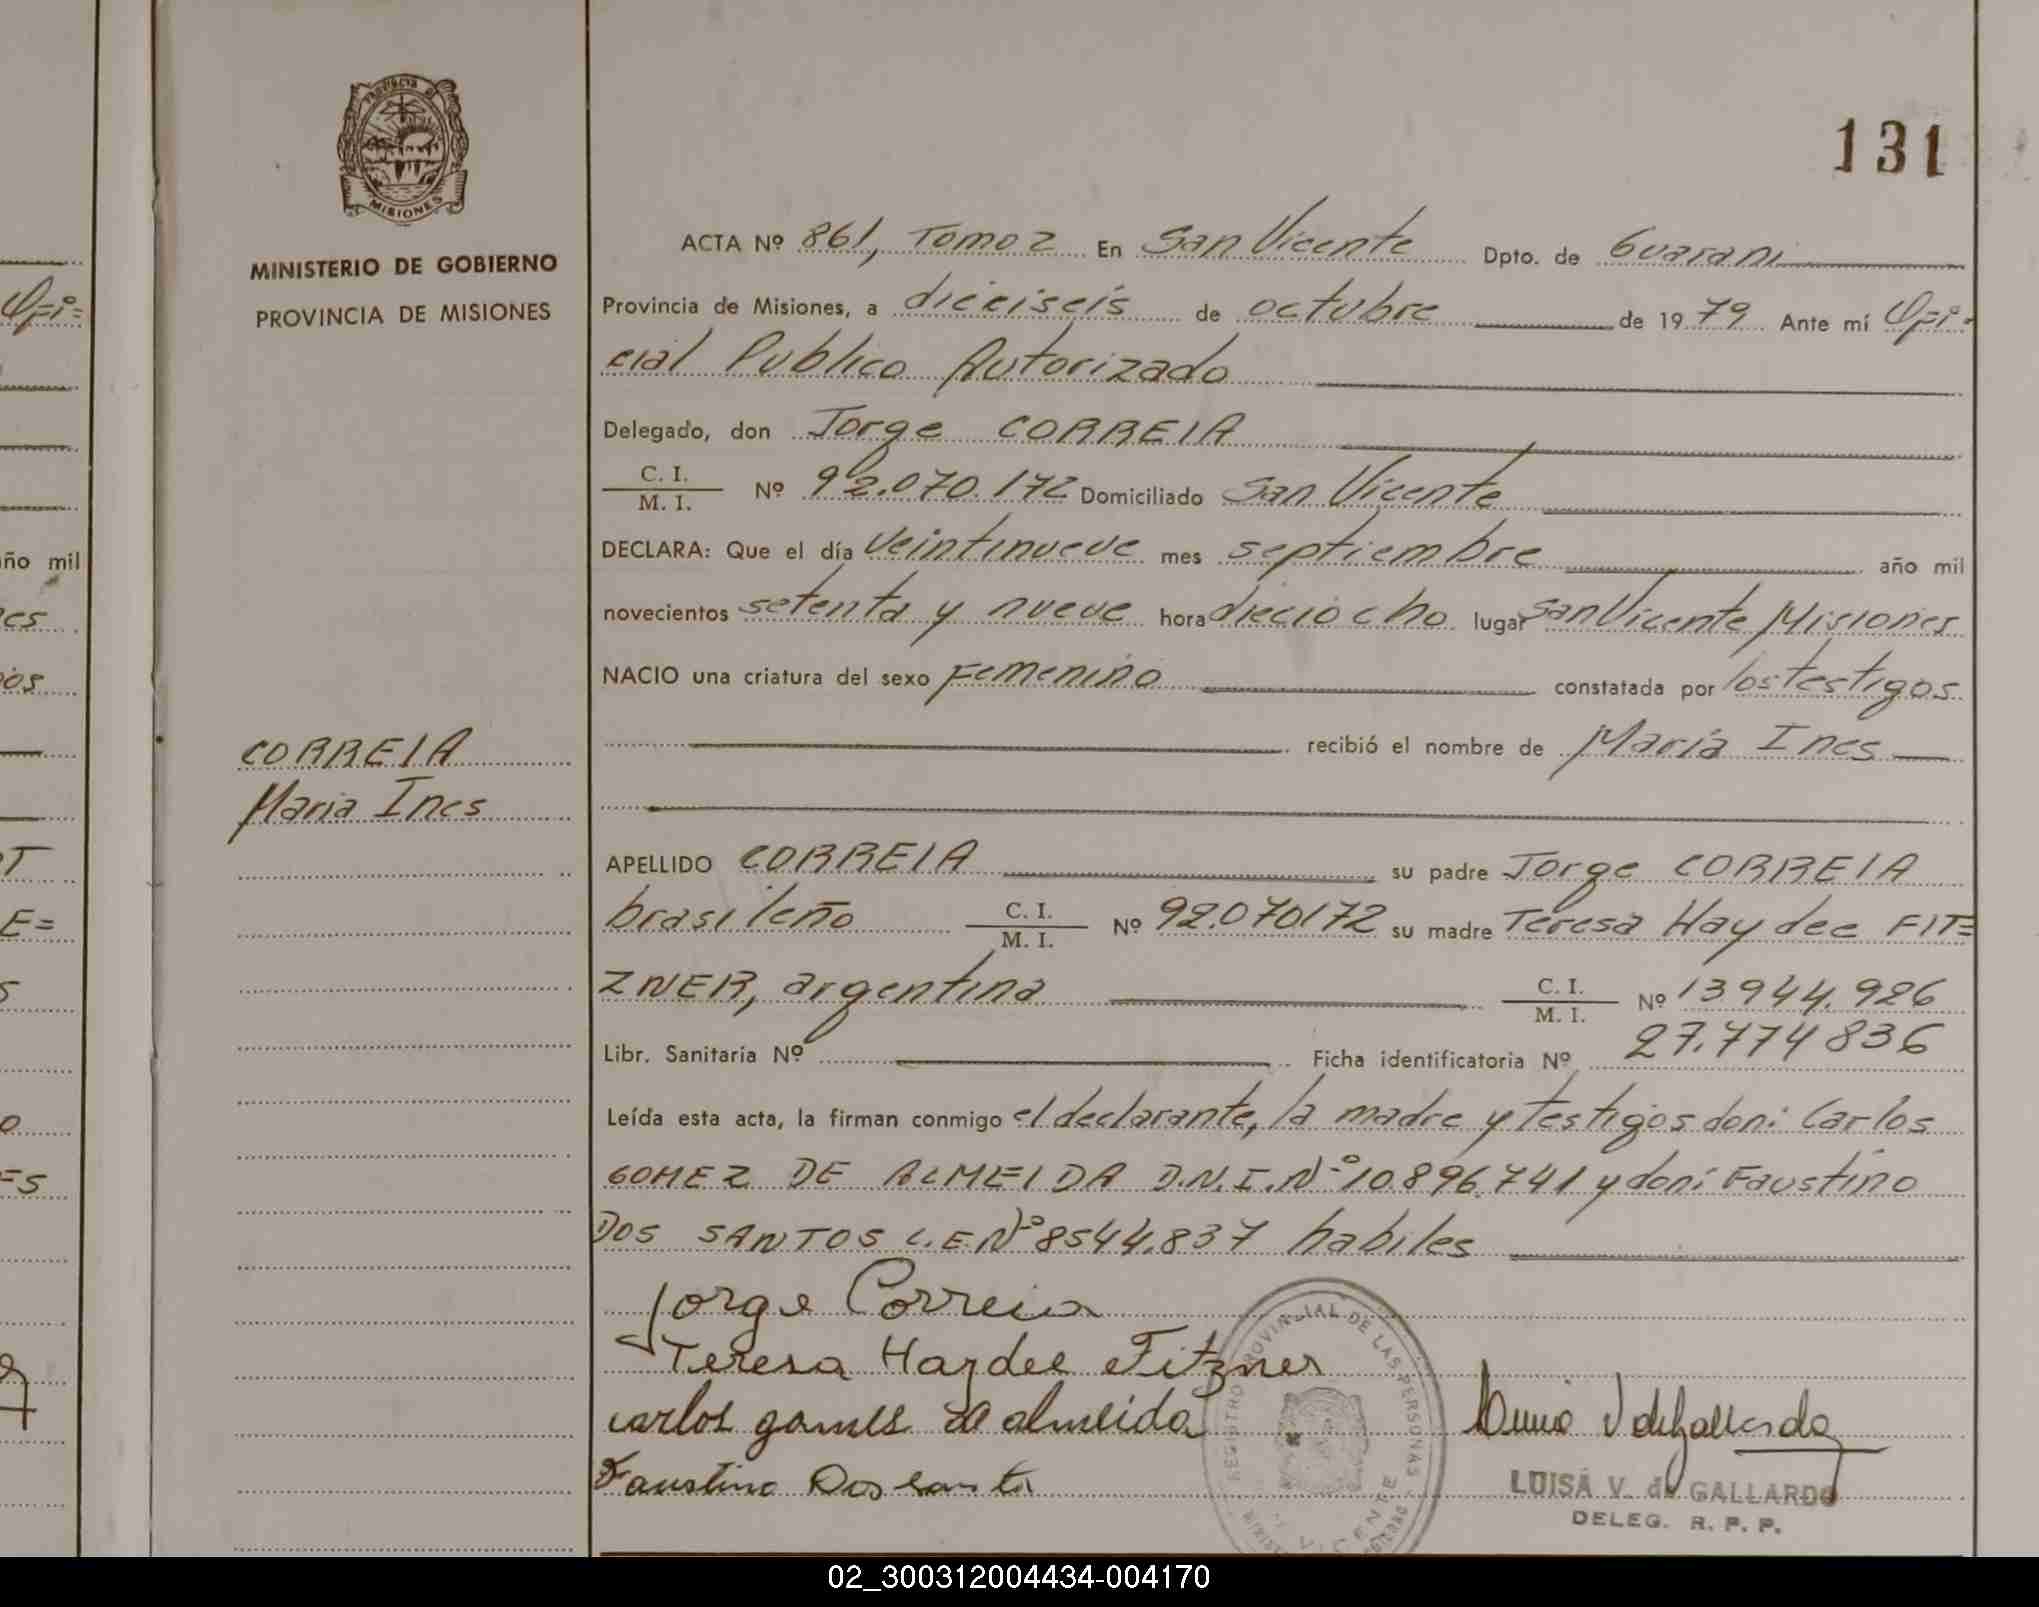 PROVINCIA D
MISIONES
MINISTERIO DE GOBIERNO
PROVINCIA DE MISIONES
CORREIA
Maria Ines
131
ACTA Nº 861, Tomo 2 En San Vicente Dpto. de Guarani
Provincia de Misiones, a dieciseis de octubre de 1979 Ante mí Ofi=
cial Publico Autorizado
Delegado, don Jorge CORREIA
C. I.
M. I. Nº 92.070.172 Domiciliado San Vicente
DECLARA: Que el día veintinueve mes septiembre año mil
novecientos setenta y nueve hora dieciocho lugar San Vicente Misiones
NACIO una criatura del sexo Femenino constatada por los testigos
recibió el nombre de Maria Ines
APELLIDO CORREIA su padre Jorge CORREIA
brasileño C. I. M. I. Nº 92.070172 su madre Teresa Haydee FIT=
ZNER, argentina C. I. M. I. Nº 13944.926
Libr. Sanitaria Nº Ficha identificatoria Nº 27.774836
Leída esta acta, la firman conmigo el declarante, la madre y testigos don: Carlos
GOMEZ DE ALMEIDA D.N.I.Nº 10.896.741 y don: Faustino
DOS SANTOS L.E.Nº 8544.837 habiles
Jorge Correia
Teresa Haydee Fitzner
carlos gomes de almeida
Faustino Dos santos
REGISTRO PROVINCIAL DE LAS PERSONAS
VICENTE
LUISA V. de GALLARDO
DELEG. R. P. P.
Ofi=
año mil
02_300312004434-004170